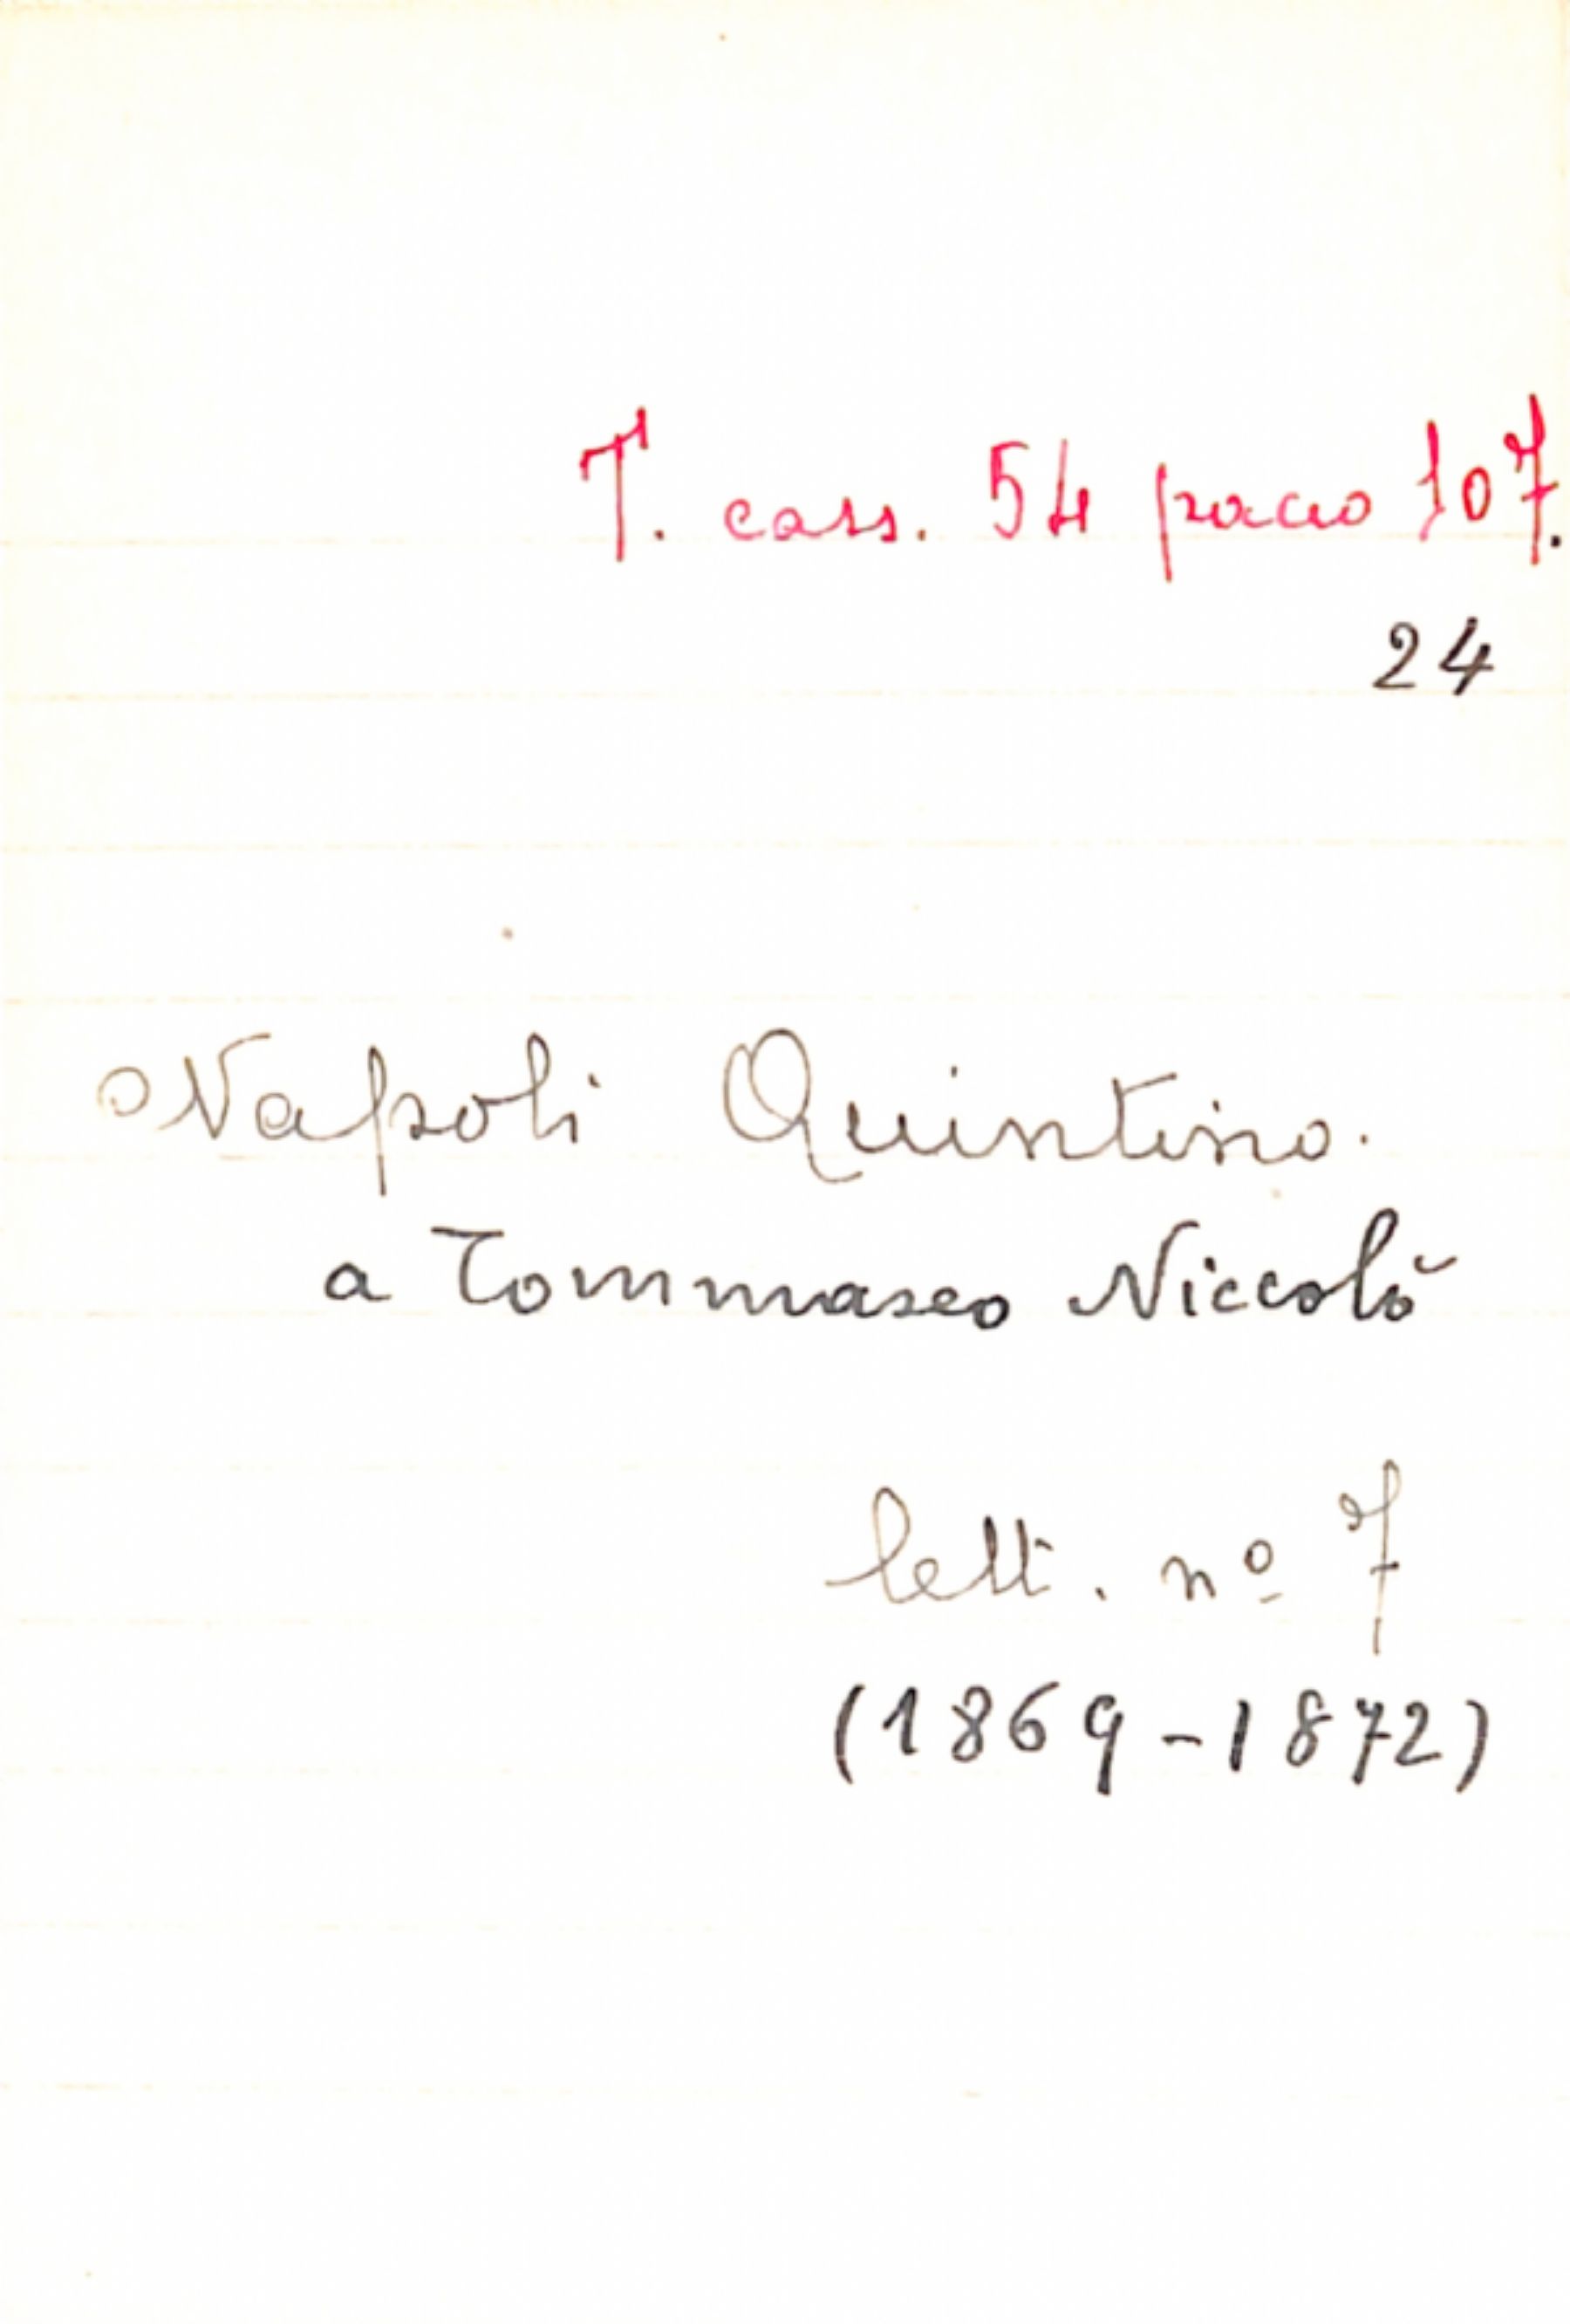 T. cass. 54 pacco 107.
24
Napoli Quintino.
a Tommaseo Niccolò
lett. nº 7
(1869-1872)